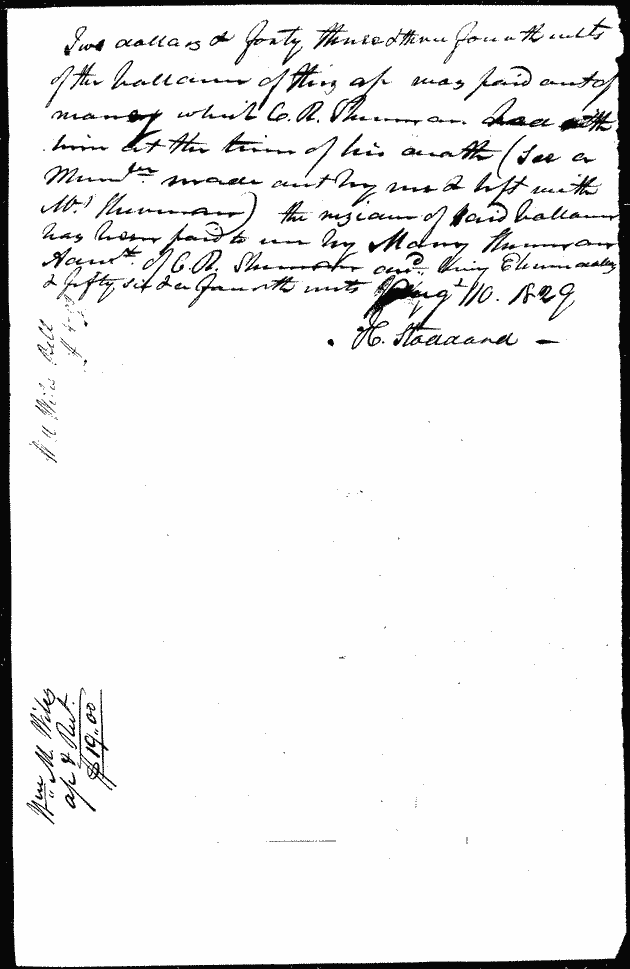 Two dollars & forty three & three fourth cents
of the ballance of this ap was paid out of
money which C. R. Sherman had with
him at the time of his death (See a
Mem<sup>dm</sup> made out by me & left with
Mrs Sherman) the residue of said ballance
has been paid to me by Mary Sherman
Admx. of C. R. Sherman decd. being Eleven dollars
& fifty six & a fourth cents Augt 10. 1829
H. Stoddard
Wm Wiles Bill
Wm M. Wiles
ap & Rect.
$19.00